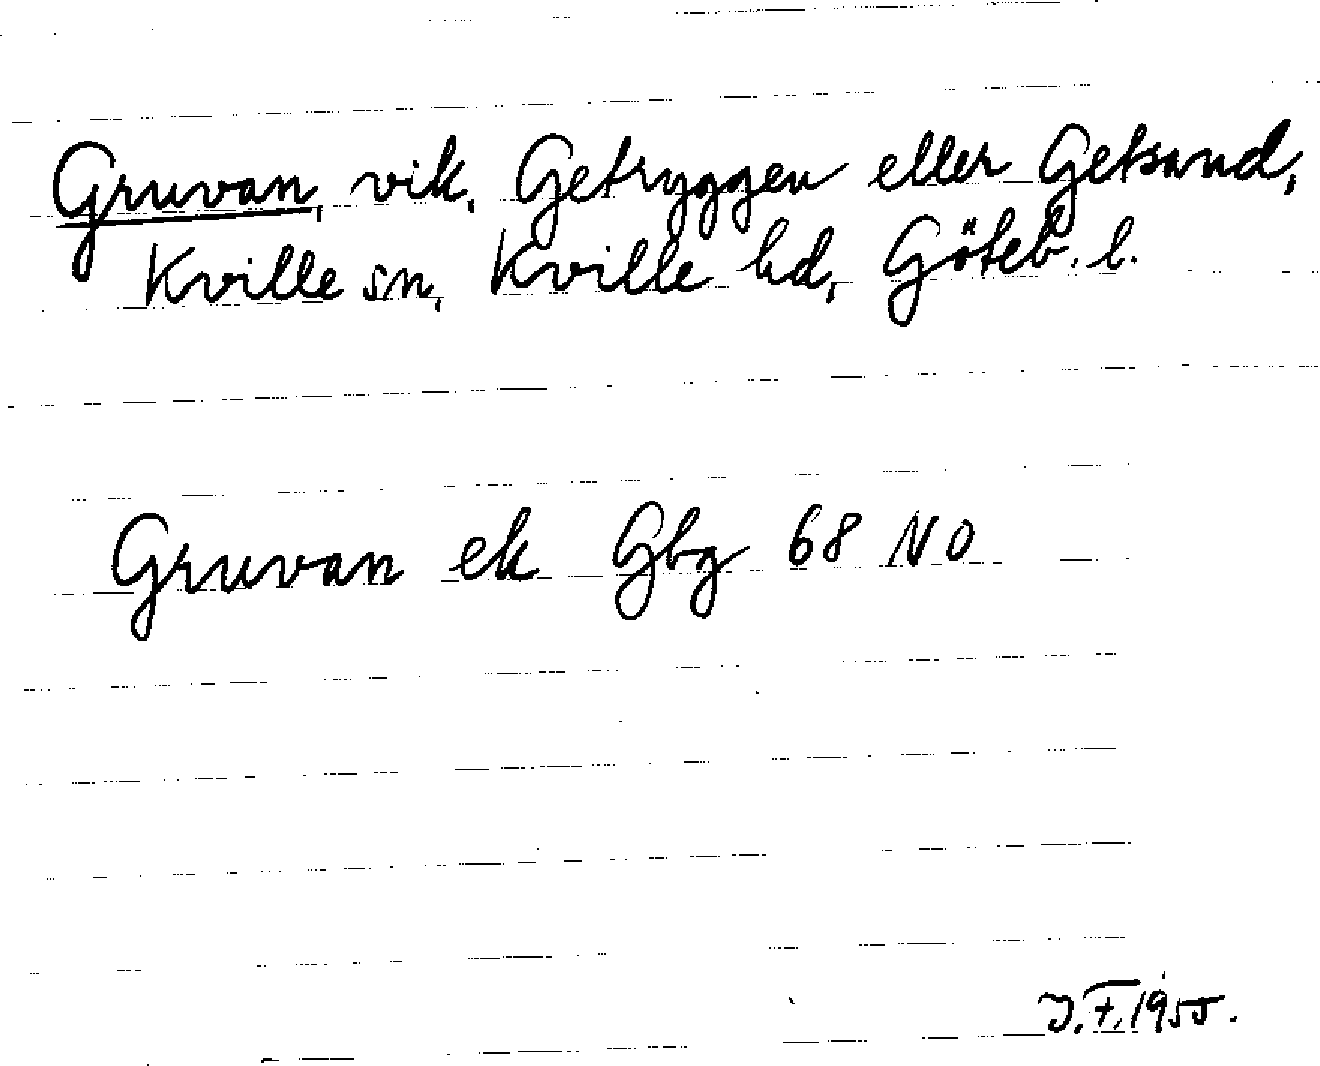 Gruvan, vik, Getryggen eller Getsand,
Kville sn, Kville hd, Göteb. l.
Gruvan ek Gbg 68 NO
J.F. 1955.